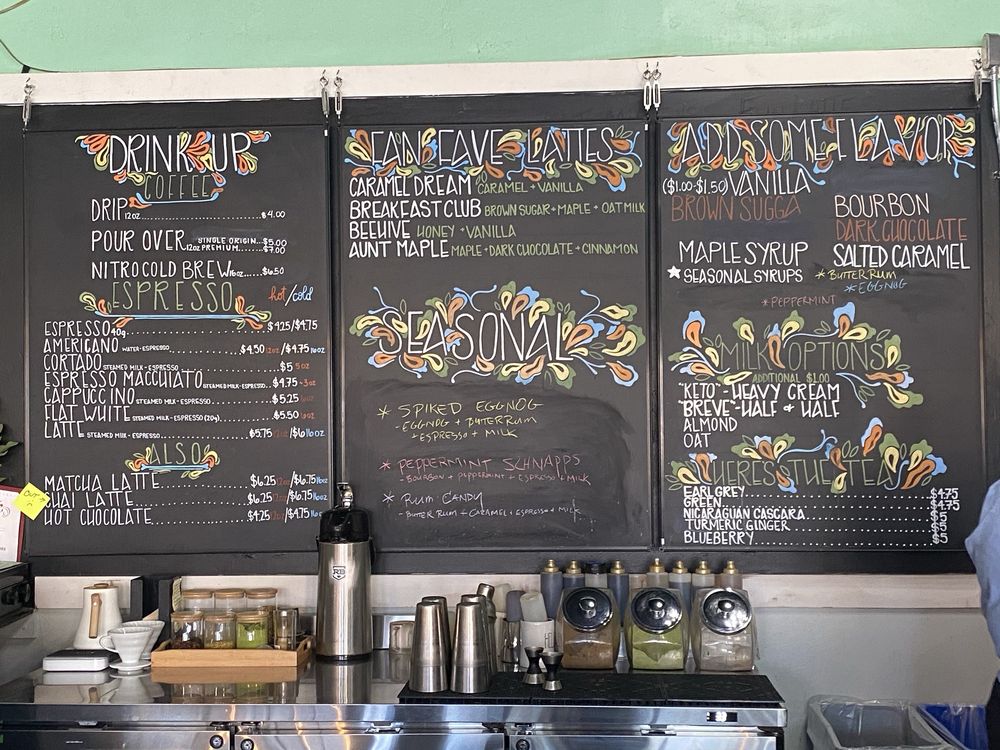 DRINK UP
COFFEE
DRIP 12oz........$4.00
POUR OVER SINGLE ORIGIN...$5.00
12oz PREMIUM........$7.00
NITRO COLD BREW 16oz.....$6.50
ESPRESSO hot/cold
ESPRESSO 40g........$4.25/$4.75
AMERICANO WATER+ESPRESSO........$4.50 12oz/$4.75 16oz
CORTADO STEAMED MILK+ESPRESSO........$5 5oz
ESPRESSO MACCHIATO STEAMED MILK+ESPRESSO...$4.75 3oz
CAPPUCCINO STEAMED MILK+ESPRESSO........$5.25
FLAT WHITE STEAMED MILK+ESPRESSO (20g)........$5.50
LATTE STEAMED MILK+ESPRESSO........$5.75 12oz/$6 16oz
ALSO
MATCHA LATTE........$6.25 12oz/$6.75 16oz
CHAI LATTE........$6.25 12oz/$6.75 16oz
HOT CHOCOLATE........$4.25 12oz/$4.75 16oz
FAN FAVE LATTES
CARAMEL DREAM CARAMEL + VANILLA
BREAKFAST CLUB BROWN SUGAR + MAPLE + OAT MILK
BEEHIVE HONEY + VANILLA
AUNT MAPLE MAPLE + DARK CHOCOLATE + CINNAMON
SEASONAL
* SPIKED EGGNOG
- EGGNOG + BUTTER RUM
+ ESPRESSO + MILK
* PEPPERMINT SCHNAPPS
- BOURBON + PEPPERMINT + ESPRESSO & MILK
* RUM CANDY
- BUTTER RUM + CARAMEL + ESPRESSO & MILK
ADD SOME FLAVOR
($1.00-$1.50) VANILLA
BROWN SUGGA
BOURBON
DARK CHOCOLATE
MAPLE SYRUP
SALTED CARAMEL
SEASONAL SYRUPS * BUTTER RUM
* EGGNOG
* PEPPERMINT
MILK OPTIONS
ADDITIONAL $1.00
"KETO"-HEAVY CREAM
"BREVE"-HALF & HALF
ALMOND
OAT
HERE'S THE TEA
EARL GREY........$4.75
GREEN........$4.75
NICARAGUAN CASCARA........$5
TURMERIC GINGER........$5
BLUEBERRY........$5
OUT
RB